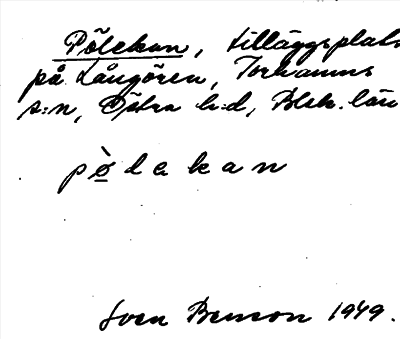 Pölekan, tilläggsplats
på Långören, Torhamns
s:n, Östra h:d, Blek. län
pø̀lekan
Sven Benson 1949.